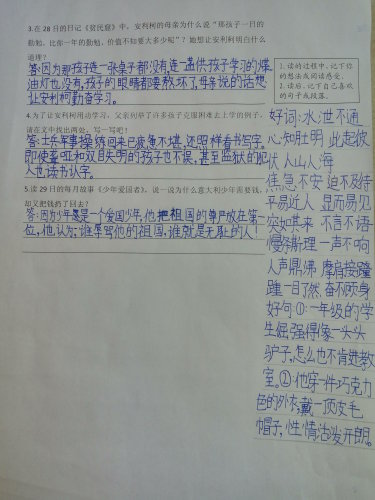 3.在28日的日记《贫民窟》中，安利柯的母亲为什么说“那孩子一日的
勤勉，比你一年的勤勉，价值不知要大多少呢”？她想让安利柯明白什么
道理？
答:因为那孩子连一张桌子都没有,连一盏供孩子学习的煤
油灯也没有,孩子的眼睛都要熬坏了,母亲说的话想
让安利柯勤奋学习。
4.为了让安利柯用功学习，父亲列举了许多孩子克服困难去上学的例子，
请在文中找出两处，写一写吧！
答:士兵军事操练回来已疲惫不堪,还照样看书写字。
即使聋哑和双目失明的孩子也不误,甚至监狱的犯
人也读书认字。
5.读29日的每月故事《少年爱国者》，说一说为什么意大利少年需要钱，
却又把钱扔了回去？
答:因为少年是一个爱国少年,他把祖国的尊严放在第一
位,他认为:谁辱骂他的祖国,谁就是无耻的人!
1.读的过程中，记下你
的想法或阅读感受。
2.读后，记下自己喜欢
的句子或段落。
好词:水泄不通
心知肚明 此起彼
伏 人山人海
焦急不安 迫不及待
平易近人 显而易见
突如其来 不言不语
慢条斯理 一声不响
人声鼎沸 摩肩接踵
踵 一目了然 奋不顾身
好句①:一年级的学
生倔强得像一头头
驴子,怎么也不肯进教
室。②:他穿一件巧克力
色的外衣,戴一顶皮毛
帽子,性情活泼开朗。